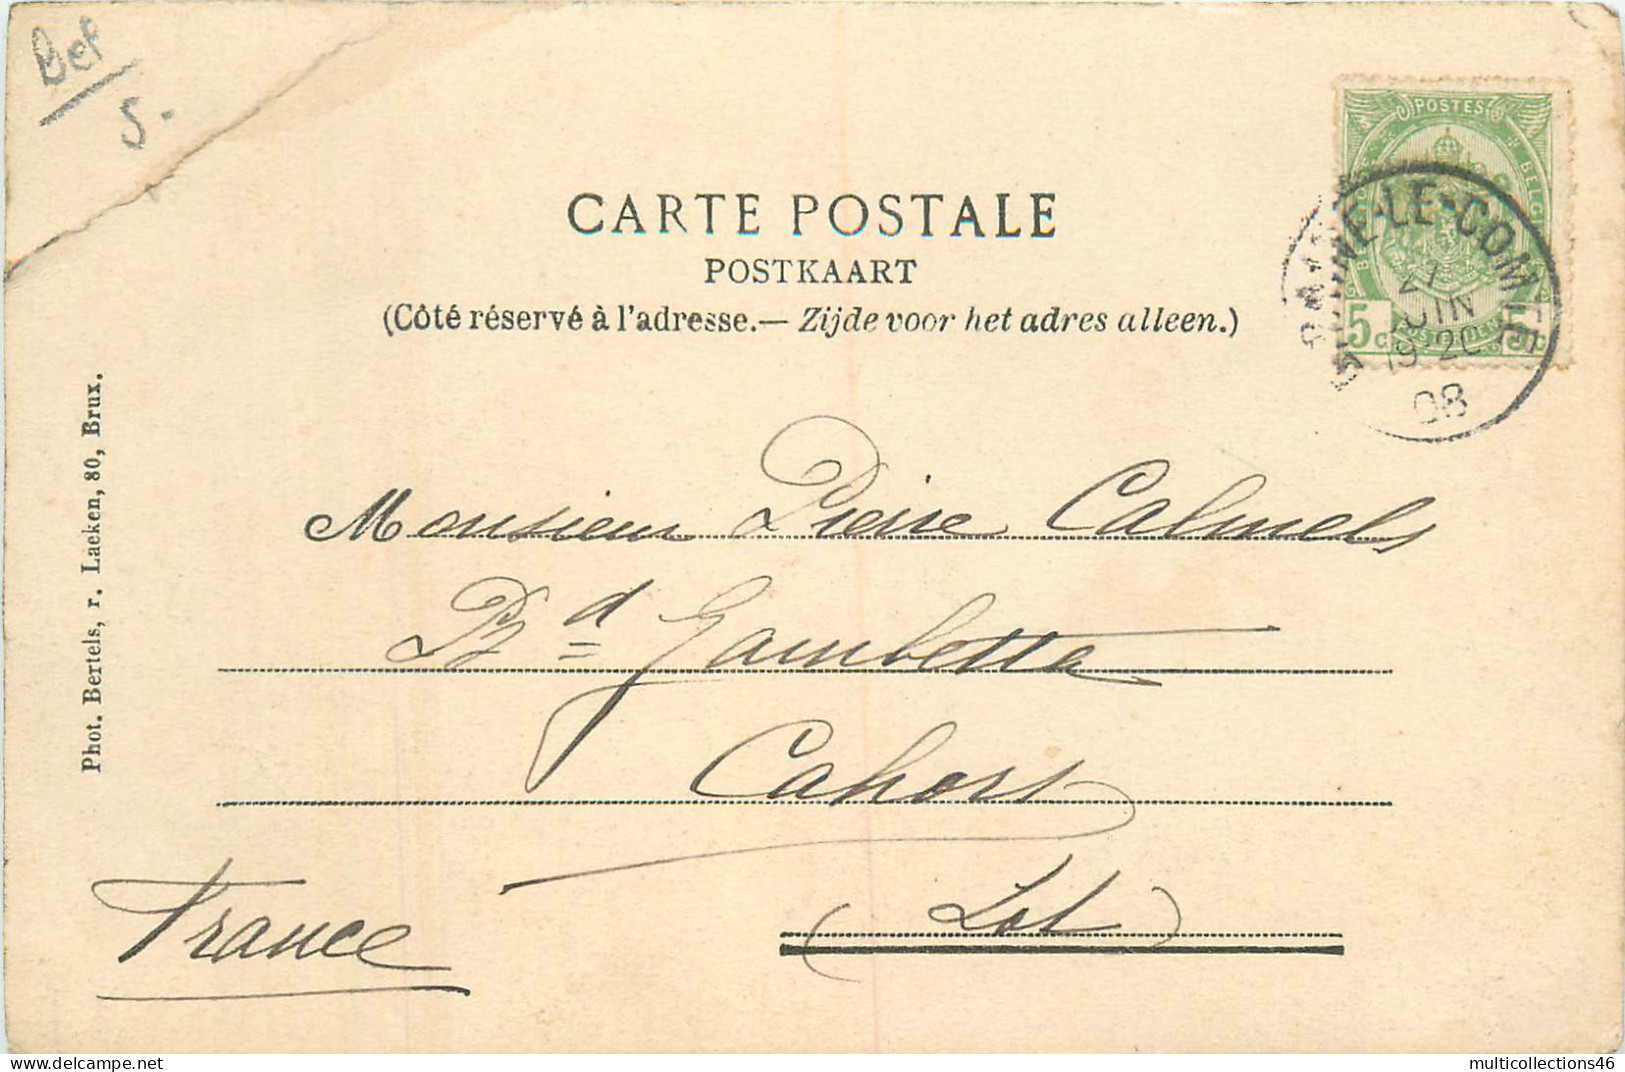 Bel
5.-
POSTES
CARTE POSTALE
POSTKAART
(Côté réservé à l'adresse.— Zijde voor het adres alleen.)
BRAINE-LE-COMTE
21
JUIN
19-20
08
5 c. POSTERIJEN 5 c.
Phot. Bertels, r. Laeken, 80, Brux.
Monsieur Pierre Calmels
Bd Gambetta
Cahors
(Lot)
France
https://www.delcampe.net
multicollections46